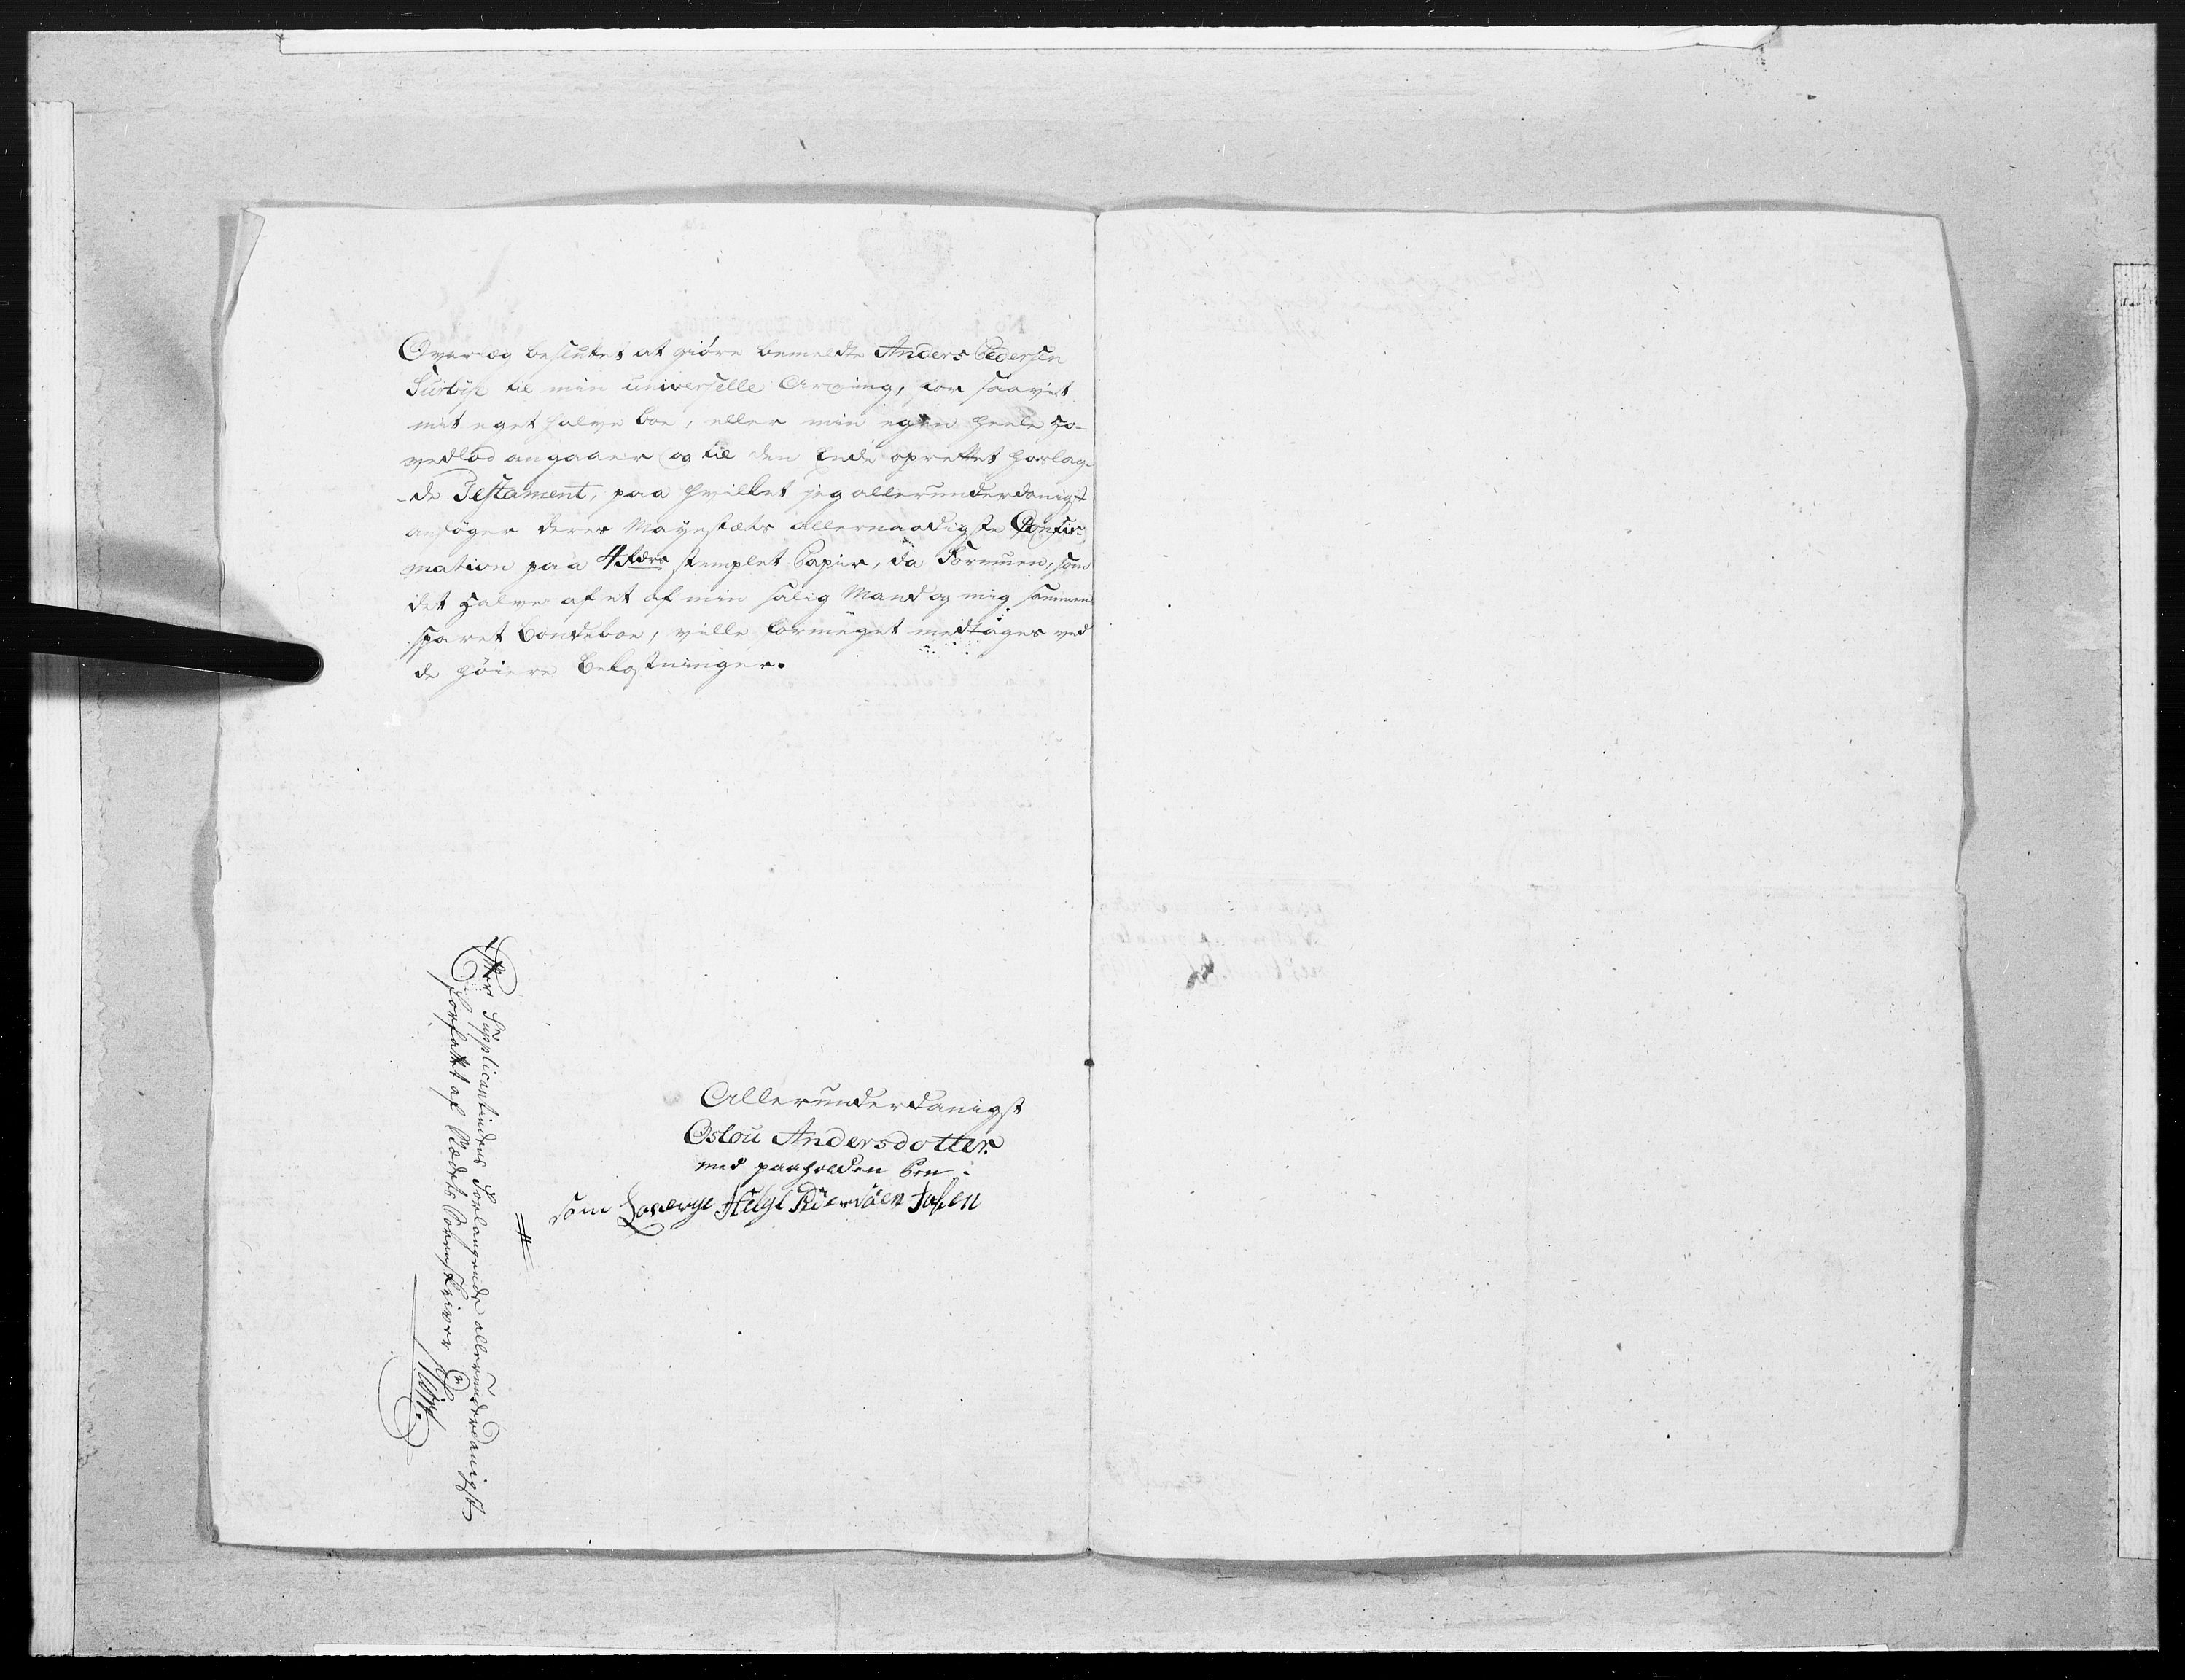 Over og besluttet at giøre bemeldte Anders Pedersen
til min universelle Arving, for saavit
mit eget halve boe, eller min egen heele Ho-
vedlod angaaer og til den Ende oprettet hoslag-
de Testament, paa hvilket jeg allerunderdanigst
ansøger Deres Mayestæts allernaadigste Confir-
mation paa 4 stemplet Papir, da Formuen, som
det halve af et af min salig Mand og mig sammen
sparet Bondeboe, ville formeget medtages ved
de høiere Bekostninger.
Allerunderdanigst
Oslou Andersdotter
med paaholden Pen
som Laverge Helge
Efter Supplicantindens Forlangende allerunderdanigst
forfattet af Stedets Sorenskriver